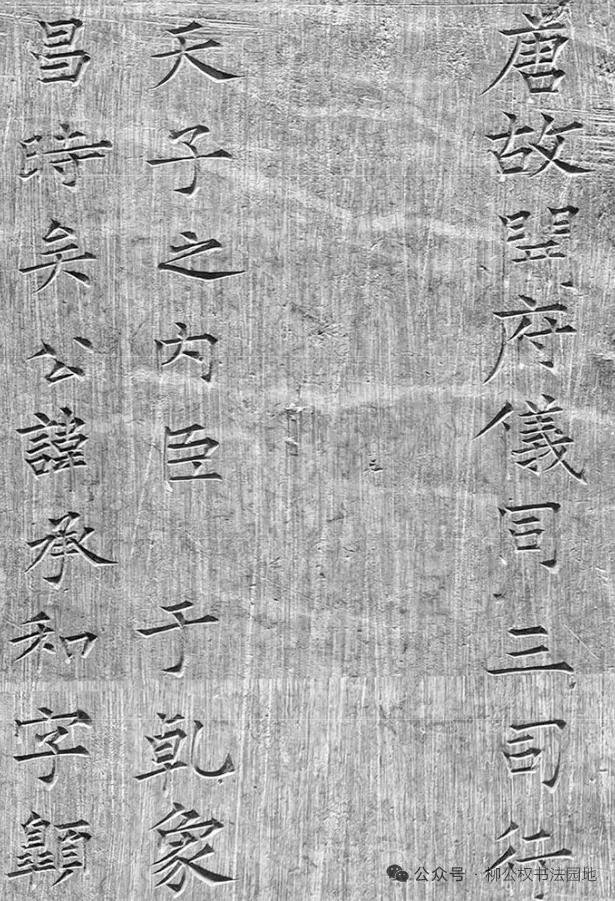 唐故開府儀同三司行
天子之内臣 于乹象
昌時矣公諱承和字
公众号 · 柳公权书法园地